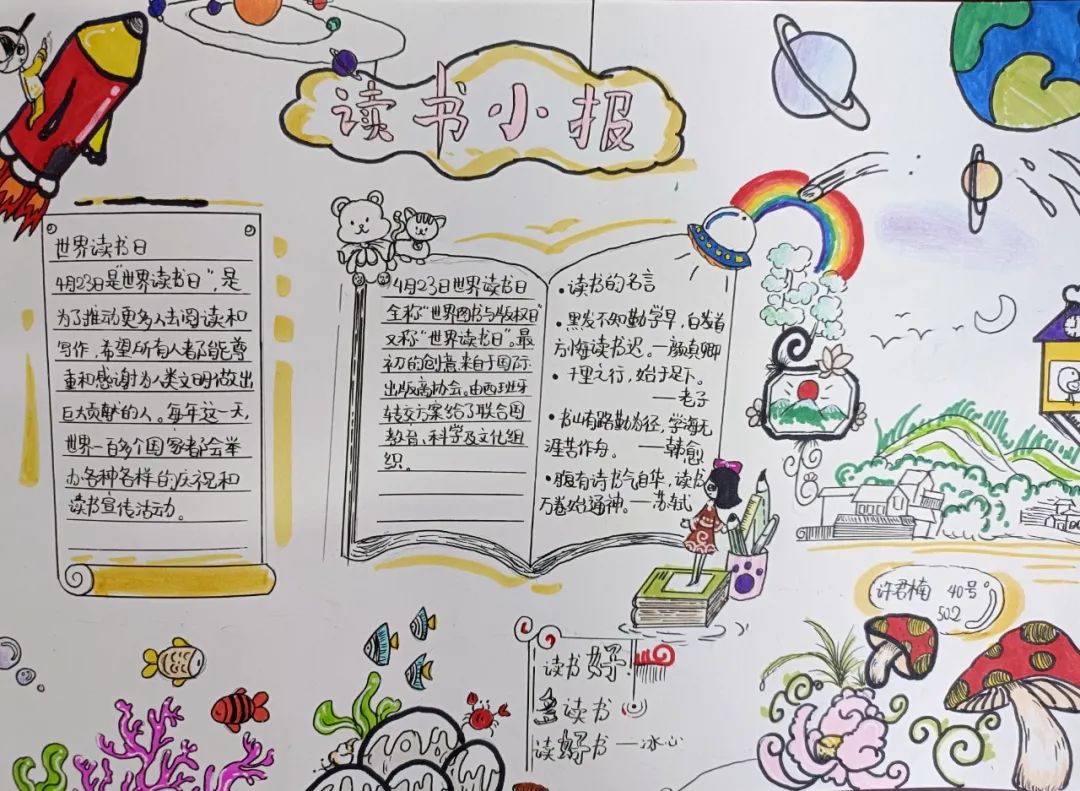 读书小报
世界读书日
4月23日是“世界读书日”,是
为了推动更多人去阅读和
写作,希望所有人都能尊
重和感谢为人类文明做出
巨大贡献的人。每年这一天,
世界一百多个国家都会举
办各种各样的庆祝和
读书宣传活动。
4月23日世界读书日
全称“世界图书与版权日”
又称“世界读书日”。最
初的创意来自于国际
出版商协会。由西班牙
转交方案给了联合国
教育、科学及文化组
织。
·读书的名言
·黑发不知勤学早,白发首
方悔读书迟。—颜真卿
·千里之行,始于足下。
—老子
·书山有路勤为径,学海无
涯苦作舟。 —韩愈
·腹有诗书气自华,读书
万卷始通神。—苏轼
许君楠 40号
502
读书好
多读书
读好书 —冰心